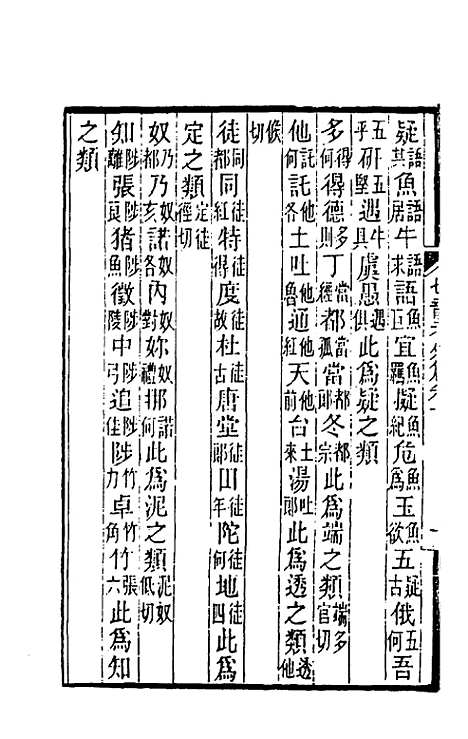 疑語其魚語居牛語求語魚巨宜魚羈擬魚紀危魚爲玉魚欲五疑古俄五何吾
五乎研五堅遇牛具虞愚遇俱此爲疑之類
多得何得德多則丁當經都當孤當都郎冬都宗此爲端之類端多官切
他託何託他各土吐他魯通他紅天他前台土來湯吐郎此爲透之類透他
候切
徒同都同徒紅特徒得度徒故杜徒古唐堂徒郎田徒年陀徒何地徒四此爲
定之類定徒徑切
奴乃都乃奴亥諾奴各內奴對妳奴禮那諾何此爲泥之類泥奴低切
知陟離張陟良猪陟魚徵陟陵中陟弓追陟隹陟竹力卓竹角竹張六此爲知
之類